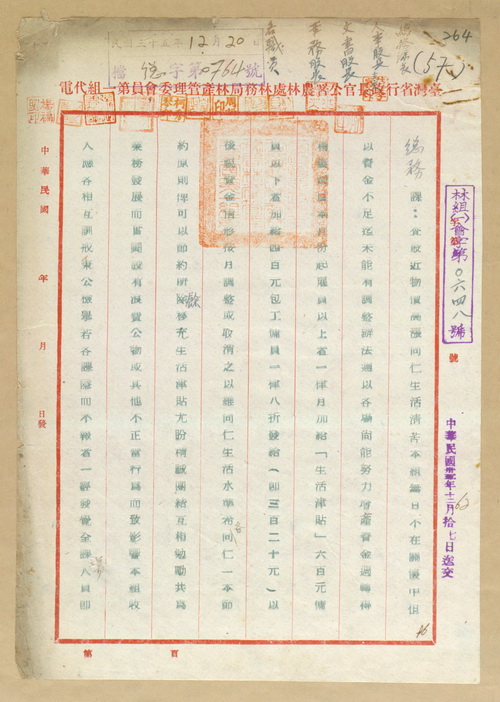 264
(57)
文書股長
業務股長
各職員
民國三十五年12月20日
檔 總 字第0764號
臺灣省行政長官公署農林處林務局林產管理委員會第一組代電
林組(一)會字第0六四八號
號
中華民國叁五年十二月拾七日送交
總務
課：查最近物價高漲同仁生活清苦本組無日不在
以資金不足迄未能有調整辦法適以各場尚能努力增產資金週轉
起雇員以上者一律月加給「生活津貼」六百元傭
員以下者加給四百元包工傭員一律八折發給(即三百二十元)以
後視資金情形按月調整或取消之以維同仁生活水準希同仁一本節
約原則撙可以節約所餘移充生活津貼尤盼精誠團結互相勉勵共為
業務發展而奮鬥設有浪費公物或其他不正當行為而致影響本組收
入應各相互訓戒秉公懲舉若各課隱而不報者一經發覺全課人員即
中華民國 年 月 日發
第 頁